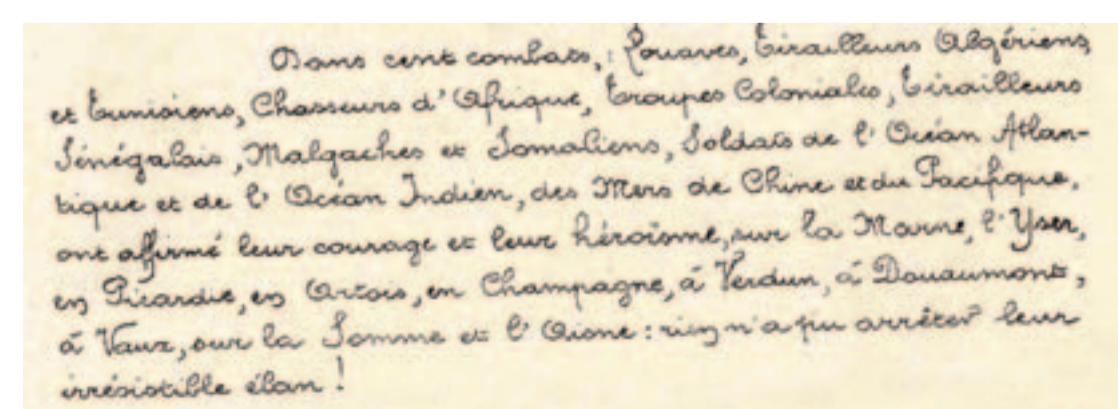 Dans cent combats, : Zouaves, Tirailleurs Algériens
et Tunisiens, Chasseurs d'Afrique, Troupes Coloniales, Tirailleurs
Sénégalais, Malgaches et Somaliens, Soldats de l'Océan Atlan-
tique et de l'Océan Indien, des Mers de Chine et du Pacifique,
ont affirmé leur courage et leur héroïsme, sur la Marne, l'Yser,
en Picardie, en Artois, en Champagne, à Verdun, à Douaumont,
à Vaux, sur la Somme et l'Aisne : rien n'a pu arrêter leur
irrésistible élan !